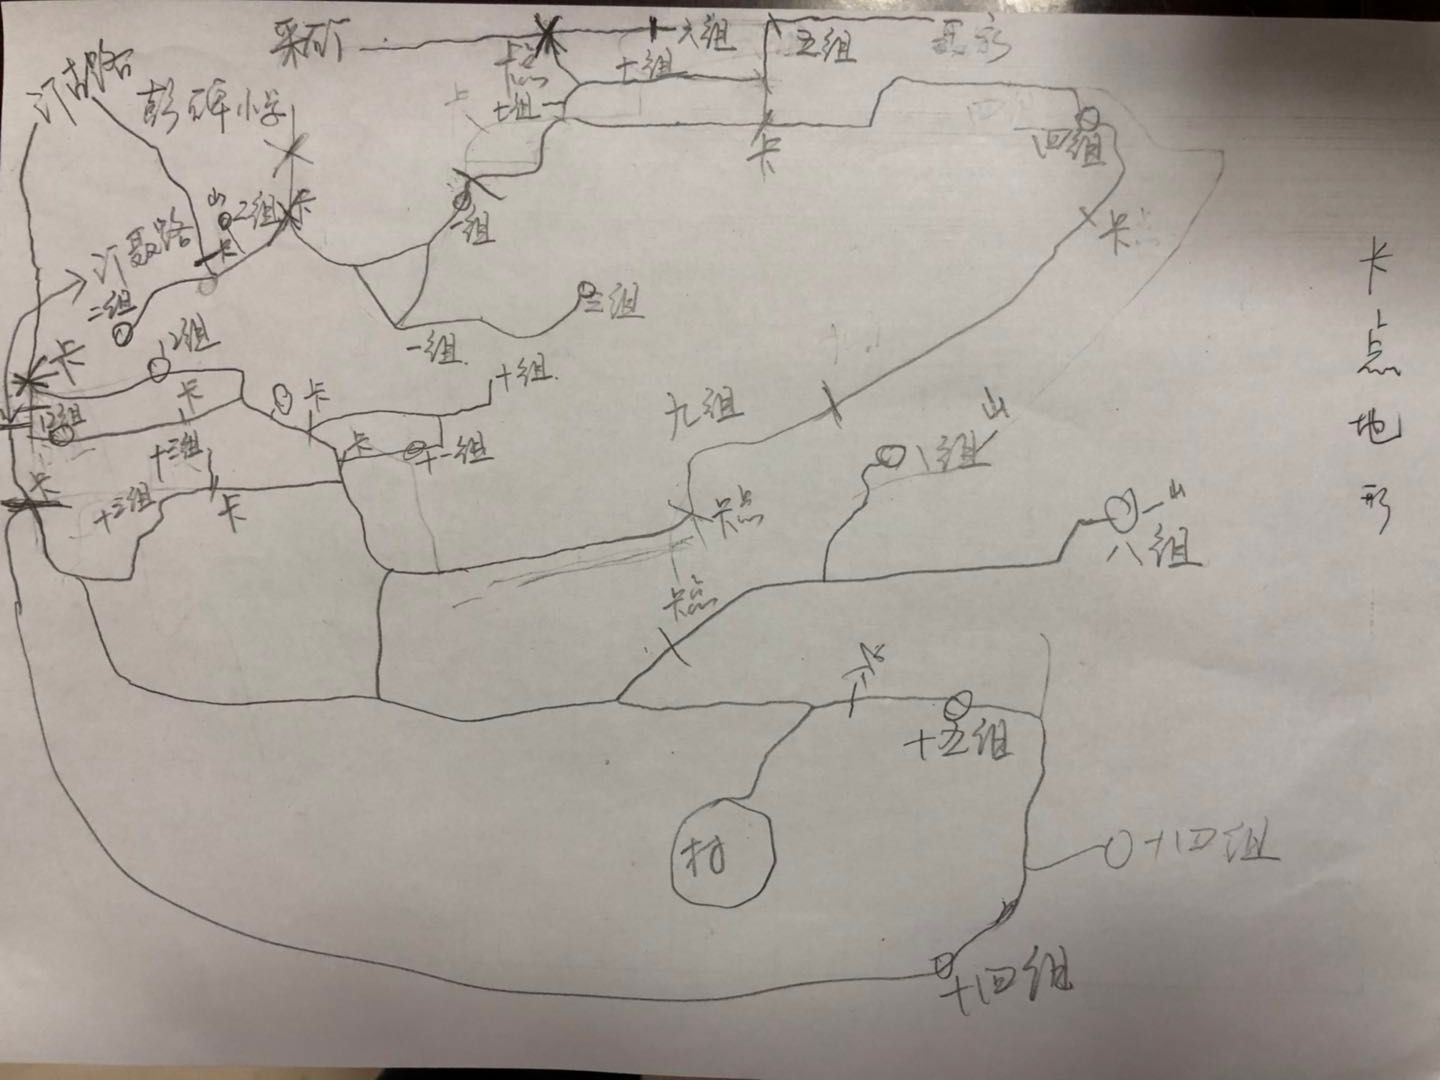 采矿
六组
五组
卡点
十组
七组
彭碑小学
卡
四组
卡
二组
卡
卡
一组
卡点
二组
三组
一组
卡
12组
卡
卡
十组
九组
山
卡
十一组
八组
13组
十三组
卡
十三组
卡
卡点
山
八组
卡点
卡
十五组
村
十四组
十四组
卡点地形